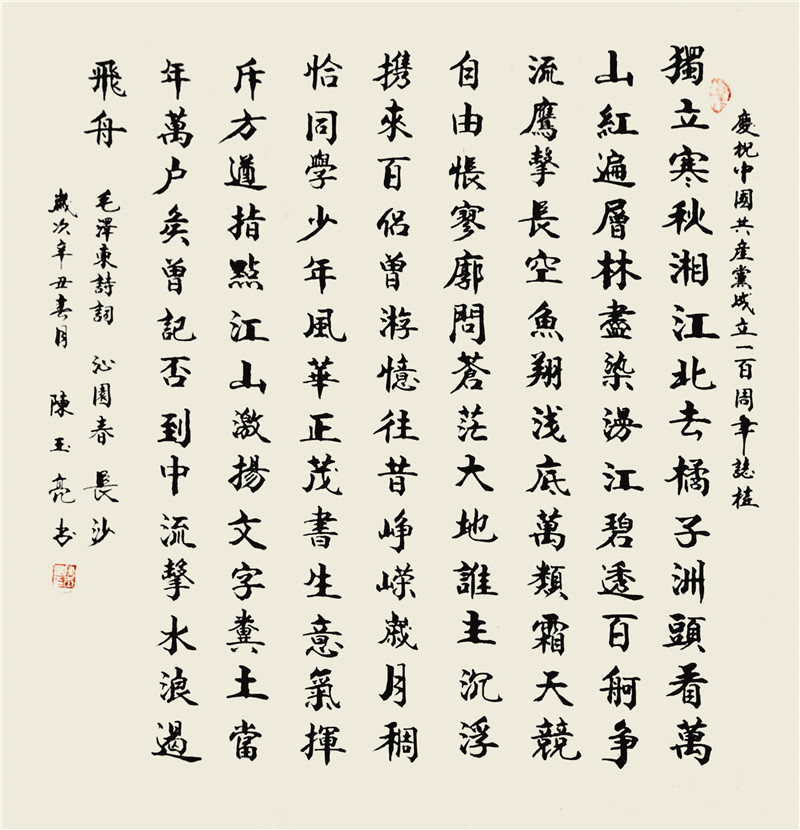 慶祝中國共產黨成立一百周年誌
獨立寒秋湘江北去橘子洲頭看萬
山紅遍層林盡染漫江碧透百舸争
流鷹擊長空魚翔浅底萬類霜天競
自由悵寥廓問蒼茫大地誰主沉浮
携來百侣曾游憶往昔峥嵘歲月稠
恰同學少年風華正茂書生意氣揮
斥方遒指點江山激揚文字糞土當
年萬户矦曾記否到中流擊水浪遏
飛舟
毛澤東詩詞 沁園春 長沙
歲次辛丑春月 陳玉亮书